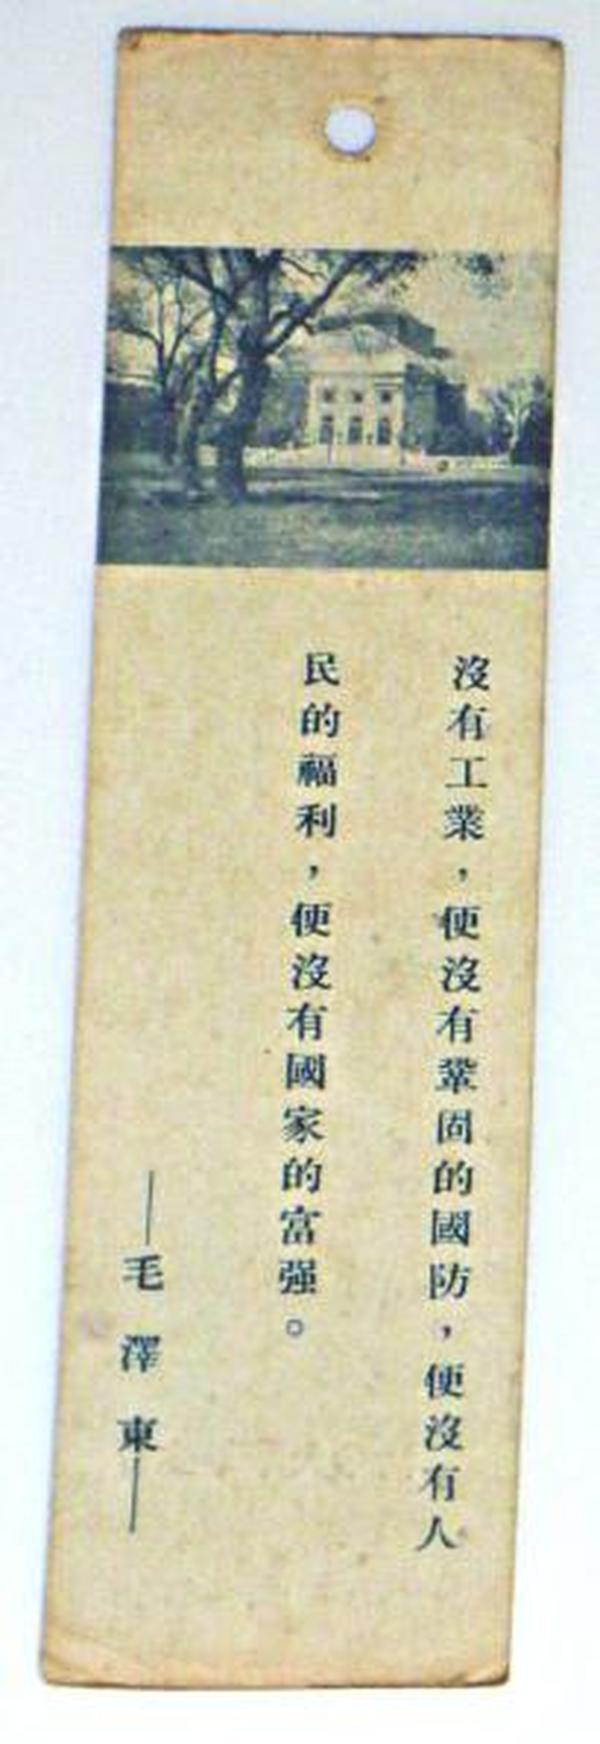 沒有工業，便沒有鞏固的國防，便沒有人
民的福利，便沒有國家的富强。
——毛澤東——